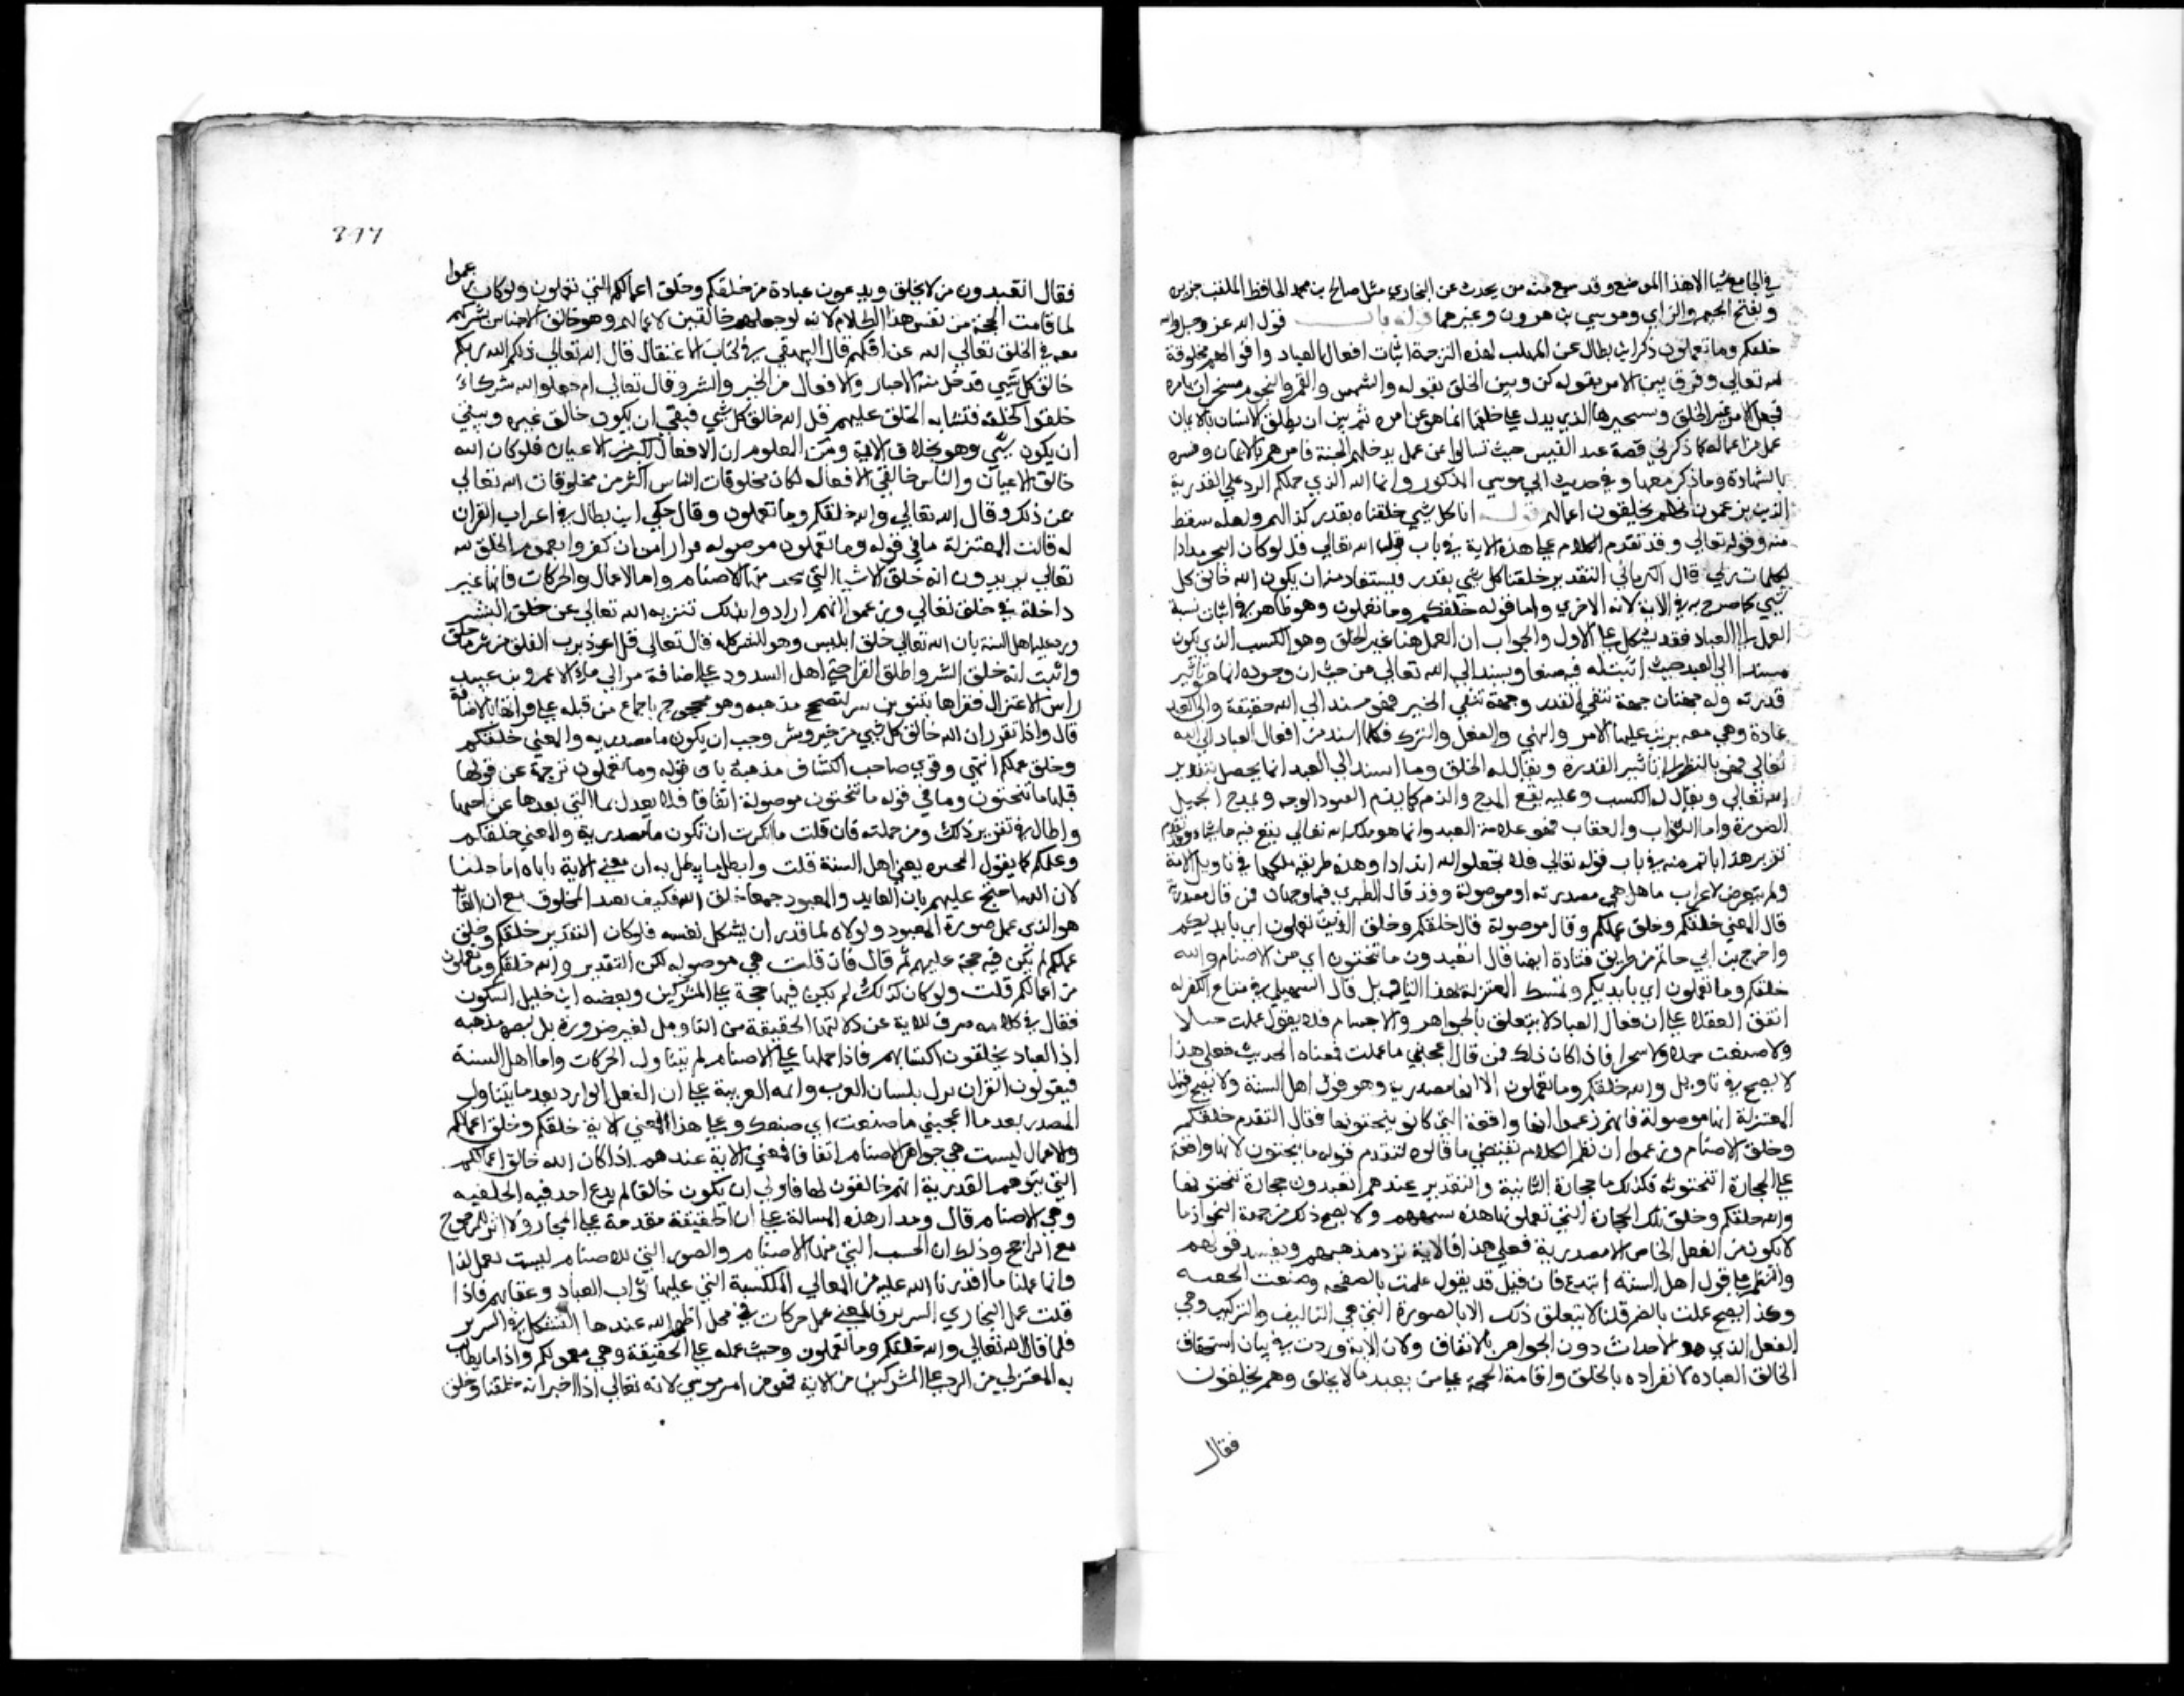 في الجامع شيا الا هذا الموضع وقد سمع منه من يحدث عن البخاري مثل صالح بن محمد الحافظ الملقب جزره
وبفتح الجيم والزاي وموسي بن هرون وغيرهما قوله باب قول الله عز وجل والله
خلقكم وما تعملون ذكر ابن بطال عن المهلب لهذه الترجمة اثبات افعال العباد واقوالهم مخلوقة
لله تعالي وفرق بين الامر بقوله كن وبين الخلق بقوله والشمس والقمر والنجوم مسخرات بامره
فجعل الامر غير الخلق وتسخيرها الذي يدل علي خلقها انما هو عن امره ثم بين ان نطق الانسان بالايمان
عمل من اعماله كما ذكر في قصة عبد القيس حيث سالوا عن عمل يدخلهم الجنة فامرهم بالايمان وفسره
بالشهادة وما ذكر معها وفي حديث ابي موسي المذكور وانما الله الذي حملكم الرد علي القدرية
الذين يزعمون انهم يخلقون اعمالهم قوله انا كل شي خلقناه بقدر كذا لهم ولعله سقط
منه وقوله تعالي وقد تقدم الكلام علي هذه الاية في باب قوله الله تعالي قل لو كان البحر مدادا
لكلمات ربي قال الكرماني التقدير خلقنا كل شي بقدر فيستفاد منه ان يكون الله خالق كل
شي كما صرح به في الاية الاخري واما قوله خلقكم وما تعملون وهو ظاهر في اثبات نسبة
العمل الي العباد فقد يشكل علي الاول والجواب ان العمل هنا غير الخلق وهو الكسب الذي يكون
مسندا الي العبد حيث اثبت له فيه صنعا ويسند الي الله تعالي من حيث ان وجوده انما هو بتاثير
قدرته وله جهتان جهة تنفي القدر وجهة تنفي الجبر فهو مسند الي الله حقيقة والي العبد
عادة وهي صفة يترتب عليها الامر والنهي والفعل والترك فكلما اسند من افعال العباد الي الله
تعالي فهو بالنظر الي تاثير القدرة ويقال له الخلق وما اسند الي العبد انما يحصل بتقدير
الله تعالي ويقال له الكسب وعليه يقع المدح والذم كما يذم المسود الوجه ويمدح الجميل
الصورة واما الثواب والعقاب فهو علامة العبد وانما هو ملك الله تعالي يفعل فيه ما يشا وقد تقدم
تقرير هذا باتم منه في باب قوله تعالي فلا تجعلوا لله اندادا وهذه طريقة سلكها في تاويل الاية
ولم يتعرض لاعراب ما هل هي مصدرية او موصولة وقد قال الطبري فيها وجهان فمن قال مصدرية
قال المعني خلقكم وخلق عملكم وقال موصولة قال خلقكم وخلق الذي تعملون اي بايديكم
واخرج بن ابي حاتم من طريق قتادة ايضا قال اتعبدون ما تنحتون اي من الاصنام والله
خلقكم وما تعملون اي بايديكم وتمسك المعتزلة بهذا التاويل قال السهيلي في نتايج الفكر له
اتفق العقلا علي ان افعال العباد لا تتعلق بالجواهر والاجسام فلا يقول عملت حبلا
ولا صنعت جملا ولا شجرا فاذا كان ذلك فمن قال اعجبني ما عملت فمعناه الحدث فعلي هذا
لا يصح في تاويل والله خلقكم وما تعملون الا انها مصدرية وهو قول اهل السنة ولا يصح قول
المعتزلة انها موصولة فانهم زعموا انها واقعة التي كانوا ينحتونها فقال التقدم خلقكم
وخلق الاصنام وزعموا ان نظم الكلام يقتضي ما قالوه لتقدم قوله ما ينحتون لانها واقعة
علي الحجارة المنحوتة فكذلك ما حجارة الثانية والتقدير عندهم اتعبدون حجارة تنحتونها
والله خلقكم وخلق تلك الحجارة التي تعملونها هذه شبهتهم ولا يصح ذلك من جهة النحو اذ ما
لا تكون من الفعل الخاص الا مصدرية فعلي هذا فالاية ترد مذهبهم وتفسد قولهم
والنظم علي قول اهل السنة ابدع فان قيل قد يقول علمت بالصفحه وصنعت الجفنه
وكذا يصح عملت بالصنم قلنا لا يتعلق ذلك الا بالصورة التي هي التاليف والتركيب وهي
الفعل الذي هو الاحداث دون الجواهر بالاتفاق ولان الاية وردت في بيان استحقاق
الخالق العباده لانفراده بالخلق واقامة الحجة علي من يعبد ما لا يخلق وهم يخلقون
فقال
فقال اتعبدون من لا يخلق ويدعون عبادة من خلقكم وخلق اعمالكم التي تعملون ولو كان كما زعموا
لما قامت الحجة من نفس هذا الكلام لانه لو جعلهم خالقين لاعمالهم وهو خالق الاجناس لشركهم
معه في الخلق تعالي الله عن افكهم قال البيهقي في كتاب الاعتقاد قال الله تعالي ذلكم الله ربكم
خالق كل شيي قدخل فيه الاعيان والافعال من الخير والشر وقال تعالي ام جعلوا لله شركاء
خلقوا كخلقه فتشابه الخلق عليهم قل الله خالق كل شي فنفي ان يكون خالق غيره ونفي
ان يكون شي وهو بخلاف الاية ومن المعلوم ان الافعال اكثر من الاعيان فلو كان الله
خالق الاعيان والناس خالقي الافعال لكان مخلوقات الناس اكثر من مخلوقات الله تعالي
عن ذلك وقال الله تعالي والله خلقكم وما تعملون وقال حكي ابن بطال في اعراب القران
له قالت المعتزلة ما في قوله وما تعملون موصوله فرارا من ان يقروا بعموم الخلق لله
تعالي يريدون انه خلق الاشيا التي نحت منها الاصنام واما الاعمال والحركات فانها غير
داخلة في خلق الله تعالي وزعموا انهم ارادوا بذلك تنزيه الله تعالي عن خلق الشر
ورد عليه اهل السنة بان الله تعالي خلق ابليس وهو الشر كله قال تعالي قل اعوذ برب الفلق من شر ما خلق
واثبت انه خلق الشر واطلق القرا حتي اهل الشذوذ علي اضافة شر الي ما الا عمرو بن عبيد
راس الاعتزال فقراها بتنوين شر لتصحيح مذهبه وهو محجوج باجماع من قبله علي قراتها بالاضافة
قال واذا تقرر ان الله خالق كل شي من خير وشر وجب ان يكون ما مصدريه والمعني خلقكم
وخلق عملكم انتهي وقوي صاحب الكشاف مذهبه بان قوله وما تعملون ترجمة عن قوله
قبلها ما تنحتون وما في قوله ما تنحتون موصولة اتفاقا فلا يعدل بما التي بعدها عن اختها
واطال في تقرير ذلك ومن جملته فان قلت ما انكرت ان تكون ما مصدرية والمعني خلقكم
وعملكم كما يقول المجبره يعني اهل السنة قلت وابطل ما يبطل به ان معني الاية ياباه ابا جليا
لان الله احتج عليهم بان العابد والمعبود جميعا خلق الله فكيف يعبد المخلوق مع ان العابد
هو الذي عمل صورة المعبود ولولاه لما قدر ان يشكل نفسه فلو كان التقدير خلقكم وخلق
عملكم لم يكن فيه حجة عليهم ثم قال فان قلت هي موصوله لكن التقدير والله خلقكم وما تعملون
من اعمالكم قلت ولو كان كذلك لم يكن فيها حجة علي المشركين وتعقبه ابن خليل السكوني
فقال في كلامه صرف للاية عن دلالتها الحقيقة من التاويل لغير ضرورة بل لنصرة مذهبه
اذ العباد يخلقون اكسابهم فاذا حملها علي الاصنام لم تتناول الحركات واما اهل السنة
فيقولون القران نزل بلسان العرب وايمة العربية علي ان الفعل الوارد بعد ما يتناول
المصدر بعد ما اعجبني ما صنعت اي صنعك وعلي هذا فمعني الاية خلقكم وخلق اعمالكم
والاعمال ليست هي جواهر الاصنام اتفاقا فمعني الاية عندهم اذا كان الله خالق اعمالكم
التي يتوهم القدرية انهم خالقون لها فاولي ان يكون خالقا لم يدع احد فيه الخلقيه
وهي الاصنام قال ومدار هذه المسالة علي ان الحقيقة مقدمة علي المجاز ولا اثر للمرجوح
مع الراجح وذلك ان الخشب التي منها الاصنام والصور التي للاصنام ليست بعمل لنا
وانما عملنا ما اقدرنا الله عليه من المعاني المكتسبة التي عليها ثواب العباد وعقابهم فاذا
قلت عمل النجار السرير فالمعني عمل حركات في محل اظهر الله عندها التشكل في السرير
فلما قال الله تعالي والله خلقكم وما تعملون وجب حمله علي الحقيقة وهي معمولكم واذا ما يطالب
به المعتزلي من الرد علي المشركين من الاية فهو من امر موسي لانه تعالي اذا اخبر انه خلقنا وخلق